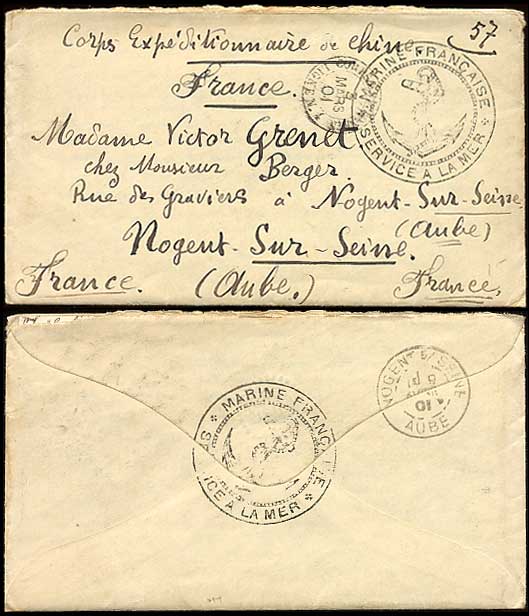 57
Corps Expéditionnaire de Chine
France.
MARS
01
MARINE FRANÇAISE
SERVICE A LA MER
Madame Victor Grenet
chez Monsieur Berger
Rue des Graviers à Nogent-Sur-Seine
(Aube)
Nogent-Sur-Seine.
France. (Aube.) France
MARINE FRANÇAISE
SERVICE A LA MER
NOGENT S/ SEINE
AUBE